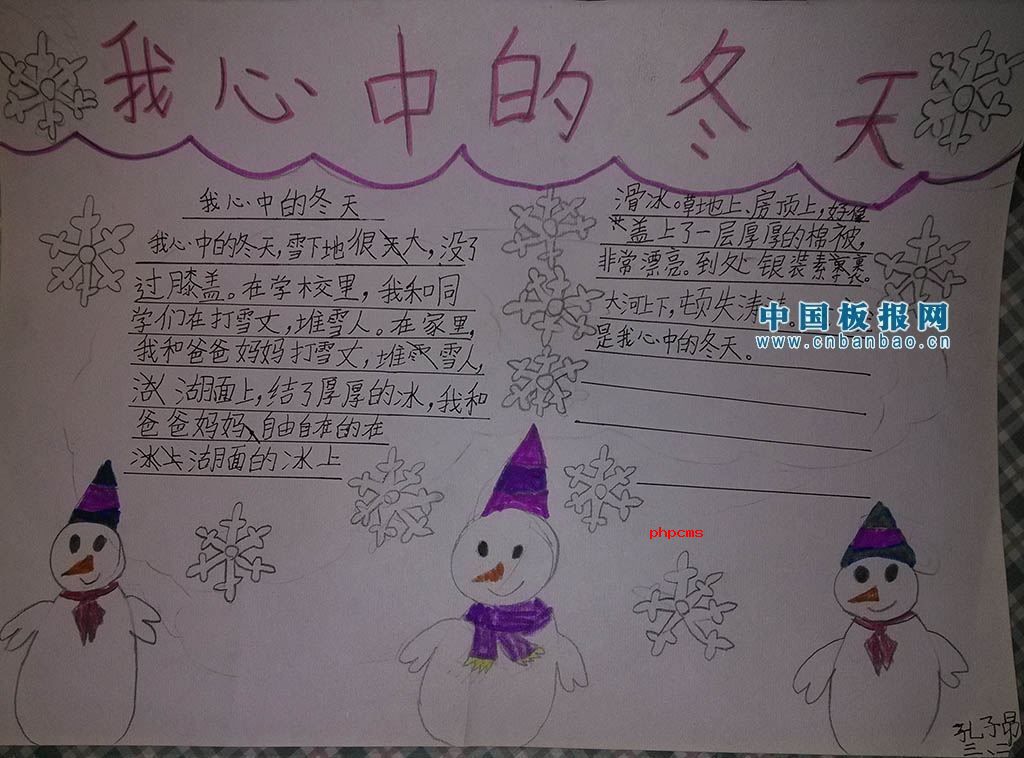 我心中的冬天
我心中的冬天
我心中的冬天,雪下地很大,没了
过膝盖。在学校里,我和同
学们在打雪丈,堆雪人。在家里,
我和爸爸妈妈打雪丈,堆雪人,
湖面上,结了厚厚的冰,我和
爸爸妈妈自由自在的在
湖面的冰上
滑冰。草地上、房顶上,好像
盖上了一层厚厚的棉被,
非常漂亮。到处银装素裹。
大河上下,顿失滔
是我心中的冬天。
中国板报网
www.cnbanbao.cn
phpcms
孔子昂
三、二